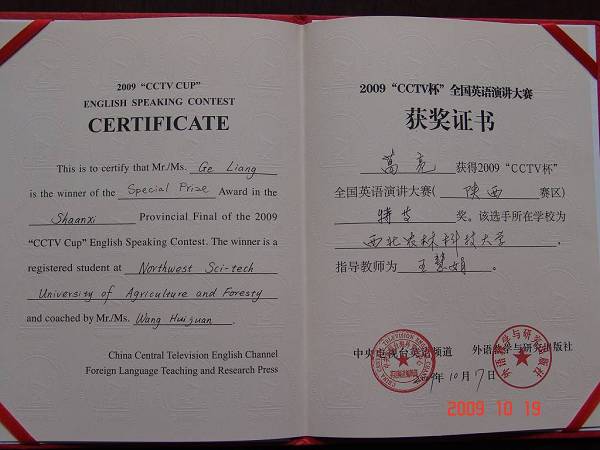 2009 “CCTV CUP”
ENGLISH SPEAKING CONTEST
CERTIFICATE
This is to certify that Mr./Ms. Ge Liang
is the winner of the Special Prize Award in the
Shaanxi Provincial Final of the 2009
“CCTV Cup” English Speaking Contest. The winner is a
registered student at Northwest Sci-tech
University of Agriculture and Foresty
and coached by Mr./Ms. Wang Huijuan.
China Central Television English Channel
Foreign Language Teaching and Research Press
2009“CCTV杯”全国英语演讲大赛
获奖证书
葛亮 获得2009“CCTV杯”
全国英语演讲大赛(陕西赛区)
特等奖。该选手所在学校为
西北农林科技大学,
指导教师为王慧娟。
中央电视台英语频道 外语教学与研究出版社
2009年10月17日
外语教学与研究出版社
2009 10 19